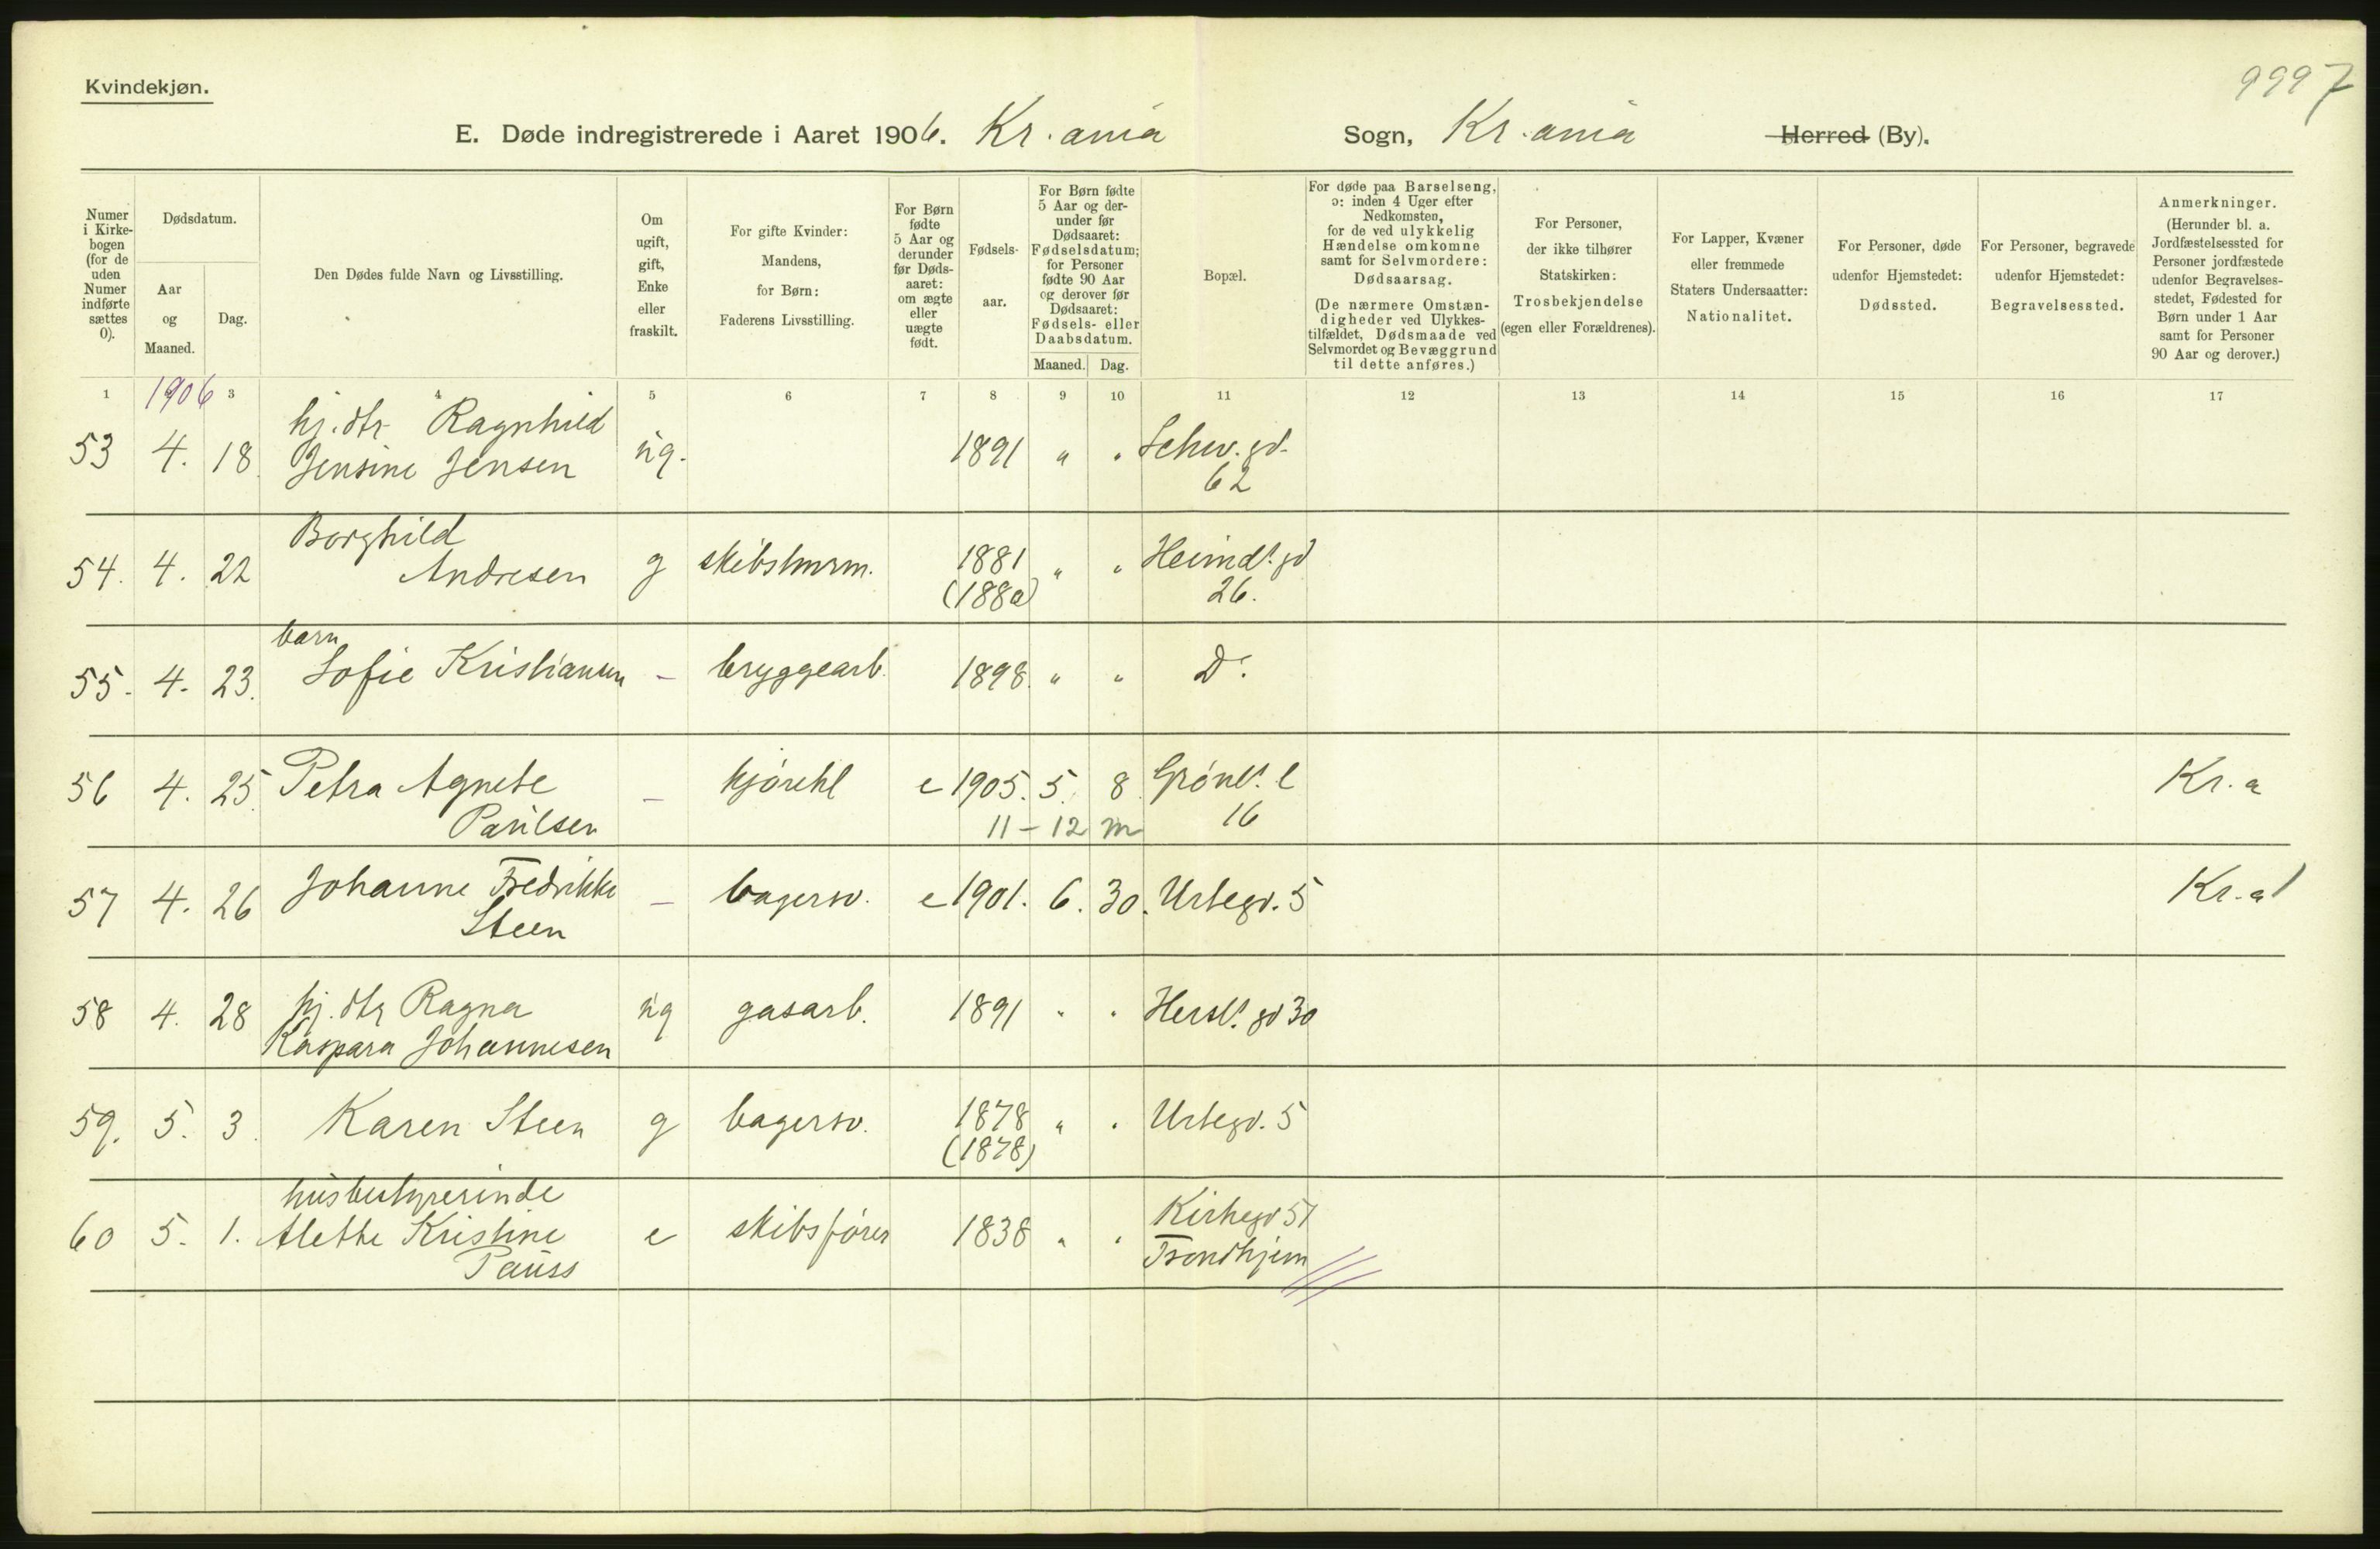 Kvindekjøn.
9997
E. Døde indregistrerede i Aaret 1906. Kr.ania Sogn, Kr.ania Herred (By).
Numer i Kirkebogen (for de uden Numer indførte sættes 0).
Dødsdatum.
Aar og Maaned.
Dag.
Den Dødes fulde Navn og Livsstilling.
Om ugift, gift, Enke eller fraskilt.
For gifte Kvinder: Mandens, for Børn: Faderens Livsstilling.
For Børn fødte 5 Aar og derunder før Dødsaaret: om ægte eller uægte født.
Fødselsaar.
For Børn fødte 5 Aar og derunder før Dødsaaret: Fødselsdatum; for Personer fødte 90 Aar og derover før Dødsaaret: Fødsels- eller Daabsdatum.
Maaned. Dag.
Bopæl.
For døde paa Barselseng, ɔ: inden 4 Uger efter Nedkomsten, for de ved ulykkelig Hændelse omkomne samt for Selvmordere: Dødsaarsag.
(De nærmere Omstændigheder ved Ulykkestilfældet, Dødsmaade ved Selvmordet og Bevæggrund til dette anføres.)
For Personer, der ikke tilhører Statskirken: Trosbekjendelse (egen eller Forældrenes).
For Lapper, Kvæner eller fremmede Staters Undersaatter: Nationalitet.
For Personer, døde udenfor Hjemstedet: Dødssted.
For Personer, begravede udenfor Hjemstedet: Begravelsessted.
Anmerkninger. (Herunder bl. a. Jordfæstelsessted for Personer jordfæstede udenfor Begravelsesstedet, Fødested for Børn under 1 Aar samt for Personer 90 Aar og derover.)
1 1906 3 4 5 6 7 8 9 10 11 12 13 14 15 16 17
hj.dtr Ragnhild
53 4. 18. Jensine Jensen ug. 1891 " " Schw. gd.
62
Borghild
54. 4. 22 Andresen g skibstmrm. 1881 " " Heimd. gd
(1880) 26.
barn
55. 4. 23. Sofie Kristiansen – bryggearb. 1898. " " Do.
56 4. 25. Petra Agnete – kjørekl e 1905. 5. 8. Grønl. l Kr.a
Paulsen 11 – 12 m 16
57 4. 26 Johanne Fredrikke – bagersv. e 1901. 6. 30. Urtegd. 5 Kr.a
Steen
58 4. 28 hj. dtr Ragna ug gasarb. 1891 " " Hersl. gd 30
Kaspara Johannesen
59. 5. 3. Karen Steen g bagersv. 1878 " " Urtegd. 5
(1878)
husbestyrerinde Kirkegd 51
60 5. 1. Alethe Kristine e skibsfører 1838 " " Trondhjem
Pauss